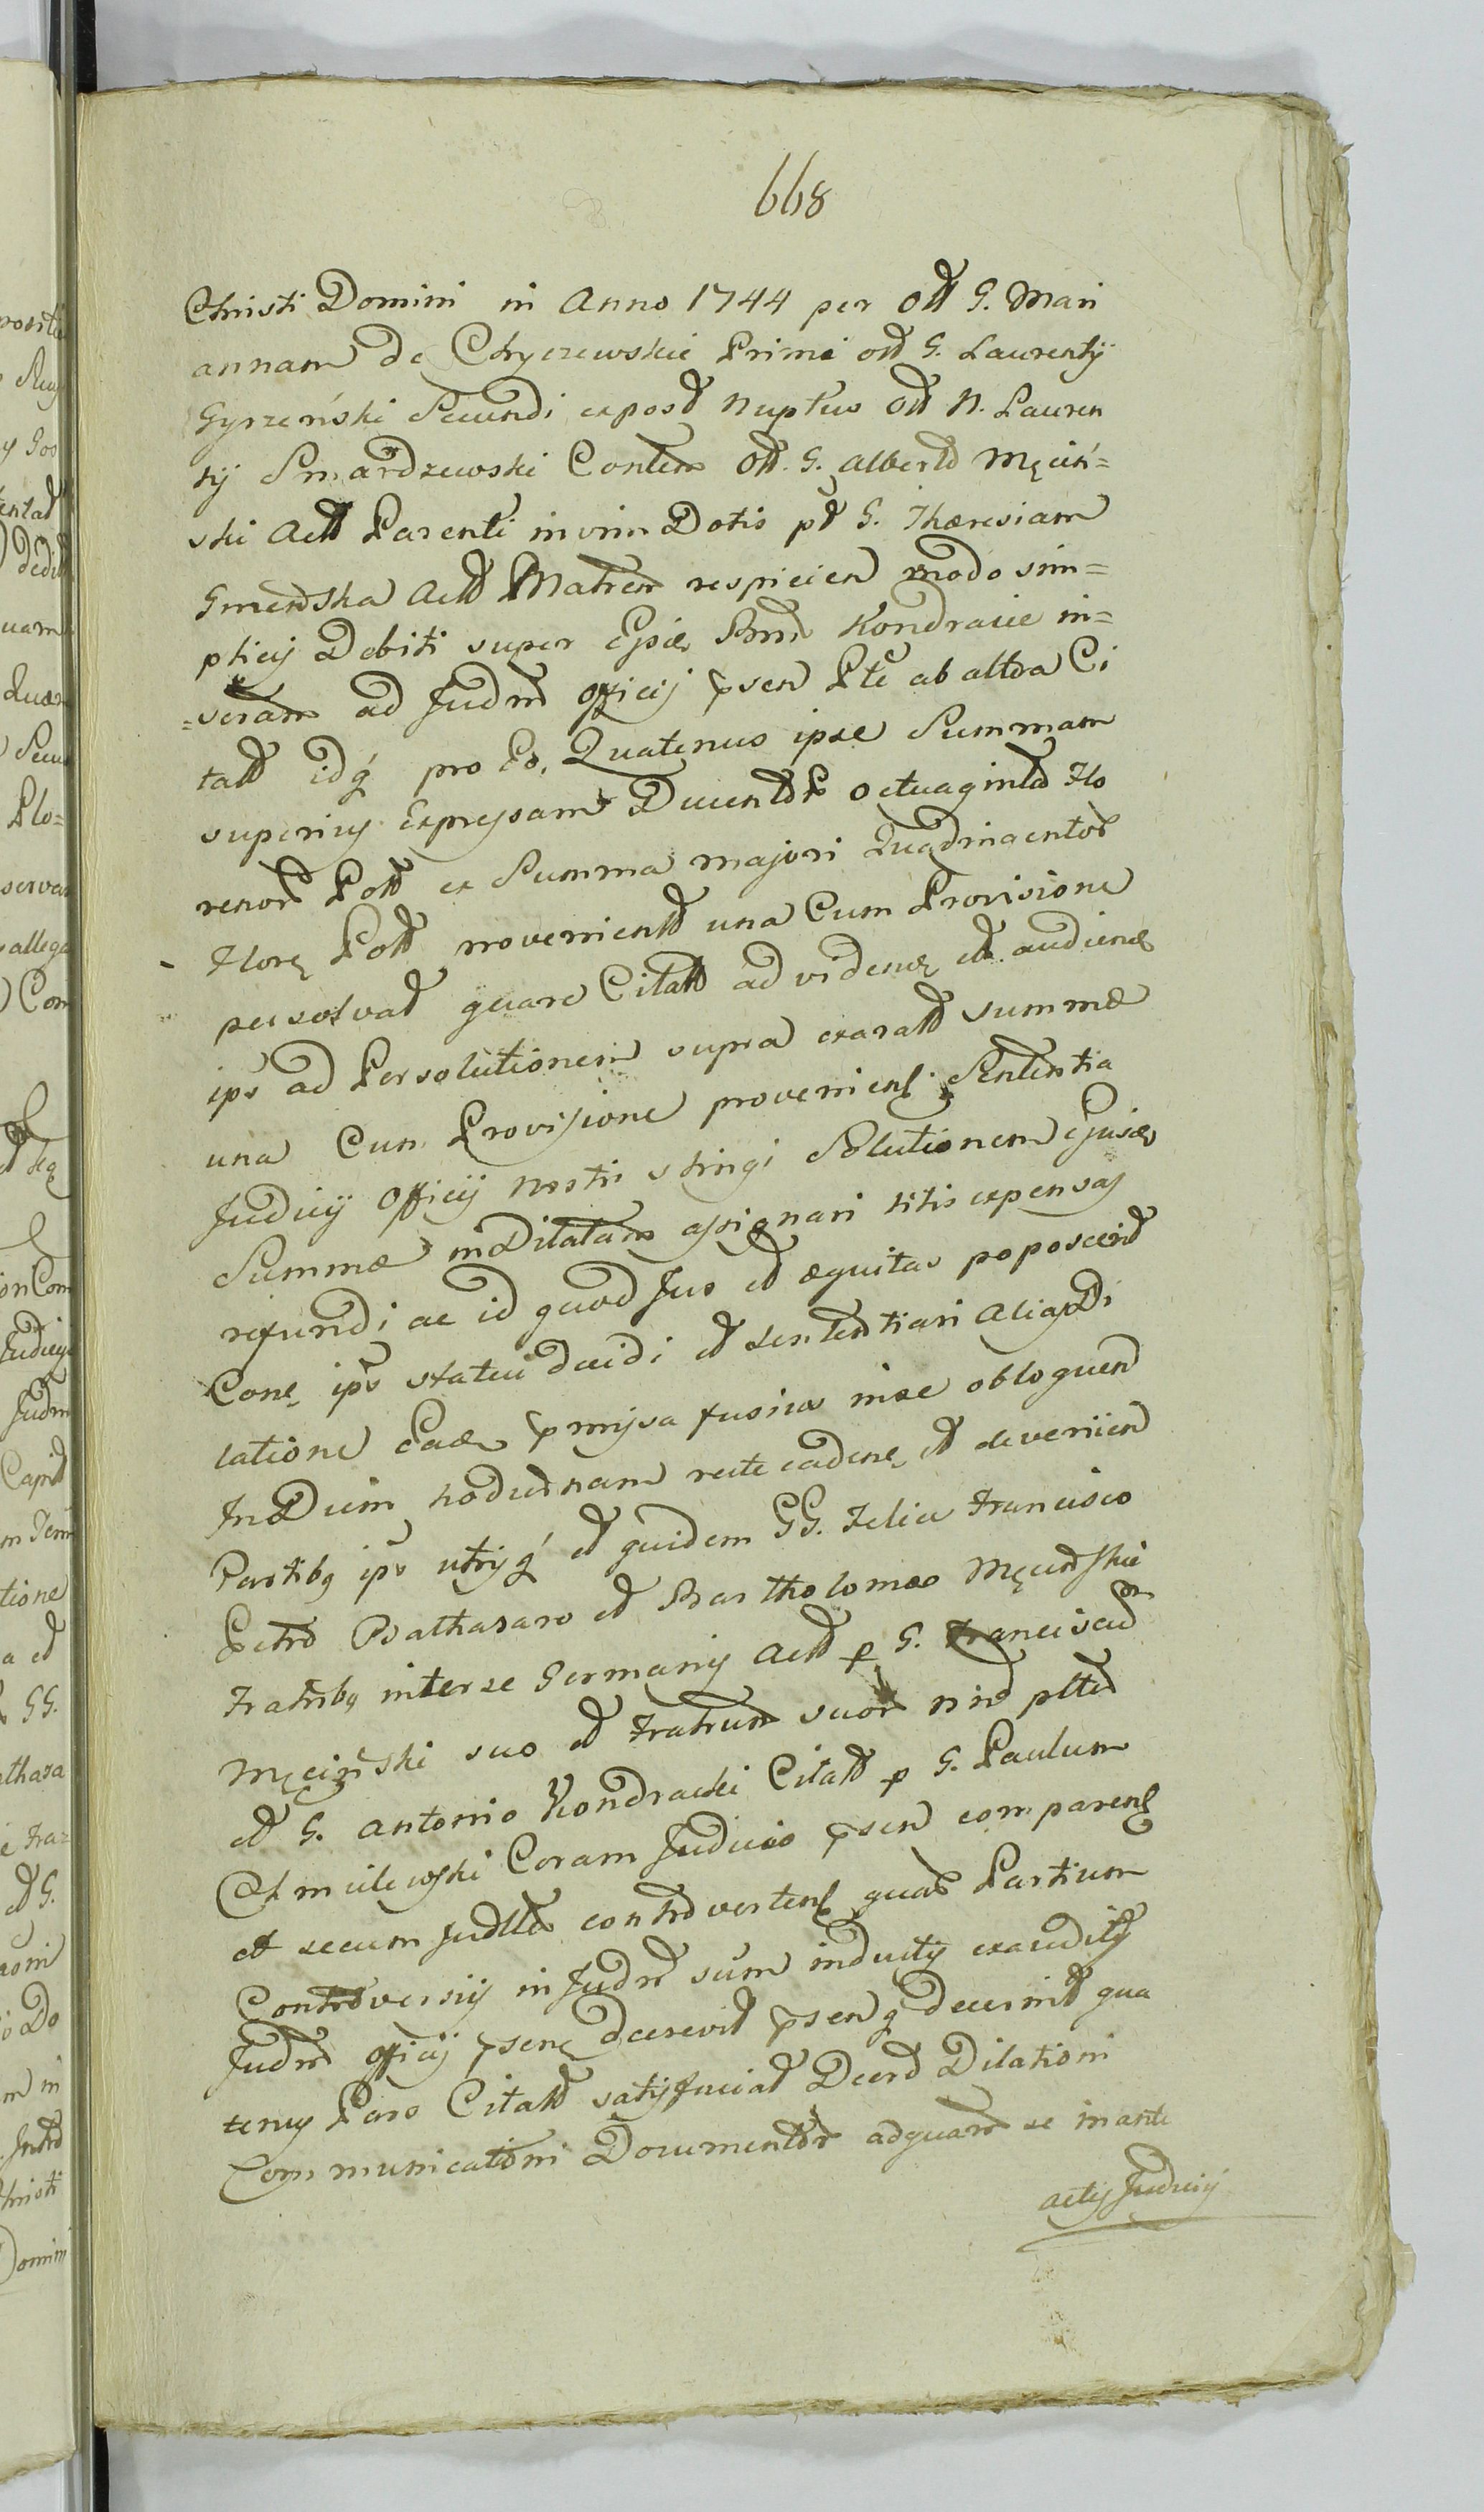 668
Christi Domini in Anno 1744 per Olt G. Mari
annam de Chyczewskie Primi olt G. Laurentÿ
Gyrzeński Secundi expost Nuptus Olt N. Lauren
tÿ Smardzewski Contem Olt. G. Alberto Męciń=
ski Actt Parenti invim Dotis pt G. Theresiam
Gmeńska Actt Matrem respicien modo sim=
plicij Debiti super Ejsdę Bnis Kondracie in=
=seram ad Judm Officij psen Pte ab altera Ci
tatt idq́ pro Eo, Quatenus ipse Summam
superiuy Expreysam Ducento Octuaginta Flo
renor Pott ex Summa majori Quadringentor
Flore Pott provenientt una Cum Provisione
persolvat quare Citatt ad videne et audiene
ips ad Persolutionem supra exaratt summæ
una Cum Provisione proveniens Sententia
Judicij Officij Nostri stringi Solutionem Ejusde
Summæ in Dilatam assignari litis expensas
refundi ac id quod Jus et æquitas poposcerit
Cone ips statui decidi et sententiari Aliaq Di
latione Eade pmissa fusius in se obloquen
In Diem hodiernam recte cadene et devenien
Partibq ips utrisq́ et quidem GG. Felice Francisco
Petro Balthasaro et Bartholomæo Męcińskie
Fratribq inter se Germanis Actt p G. Franciscum
Męciński suo et Fratrum suor nne pltte
et G. Antonio Kondracki Citatt p G. Paulum
Chmielewski Coram Judicio psen comparens
et secum Judltte controvertens quar Partium
Controversijs in Judm sum inductis exauditis
Judm Officij psene decrevit psenq decernit qua
tenus Pars Citatt satisfaciat Decre Dilationi
Communicationi Documentor ad quam se in ante
actis Judicij